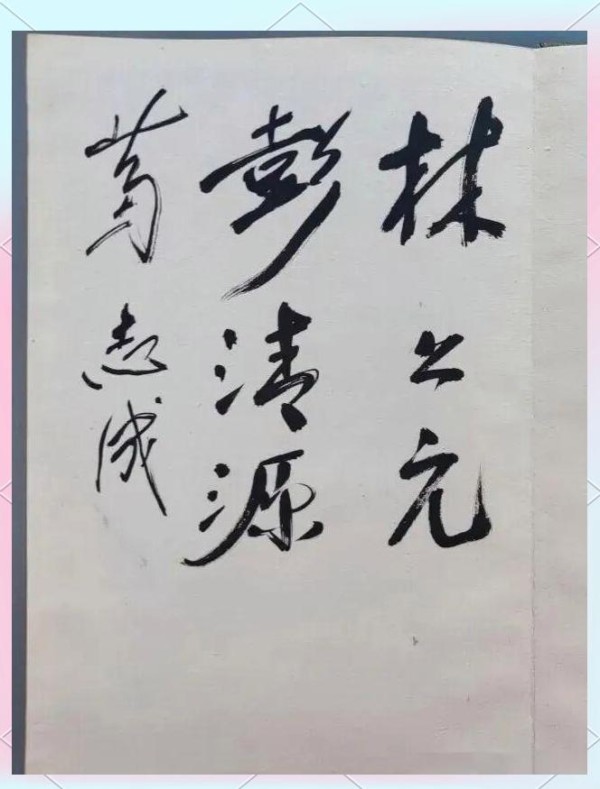 林上元
彭清源
葛志成